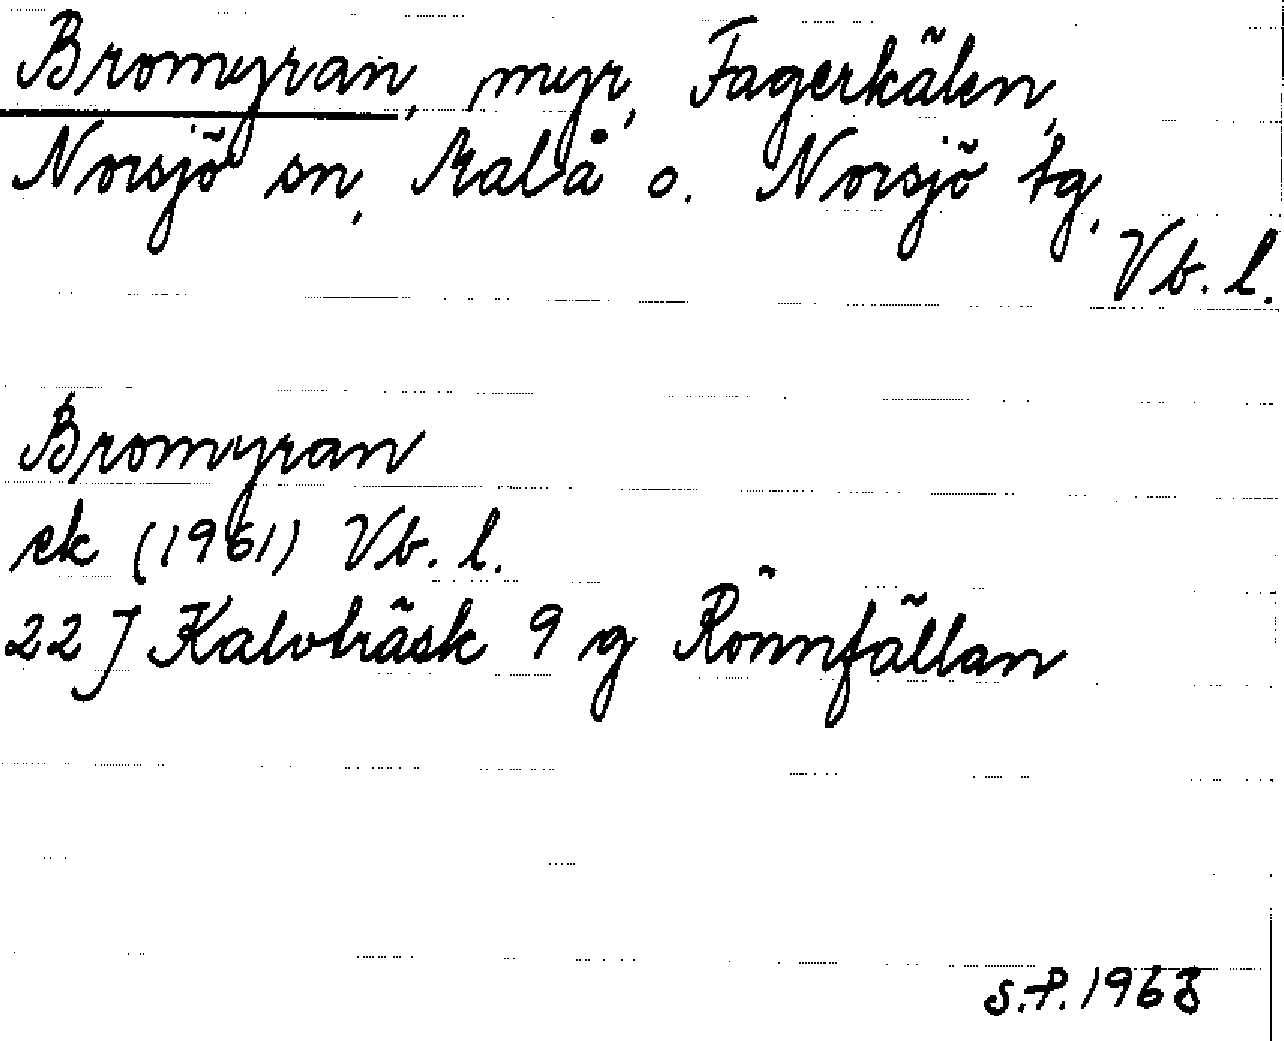 Bromyran, myr, Fagerkälen,
Norsjö sn, Malå o. Norsjö tg,
Vb. l.
Bromyran
ek (1961) Vb. l.
22 J Kalvträsk 9 g Rönnfällan
S.P. 1968